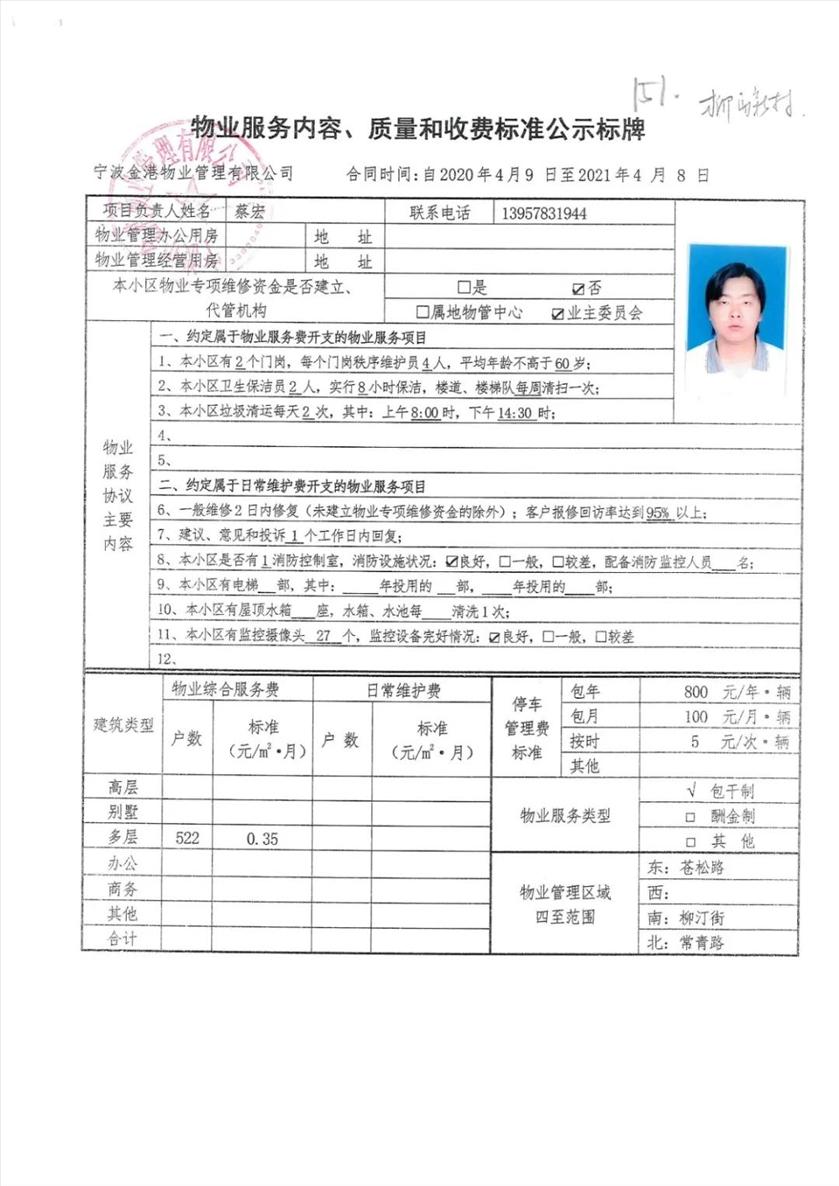 151.
柳汀新村.
物业服务内容、质量和收费标准公示标牌
宁波金港物业管理有限公司 合同时间:自2020年4月9 日至2021年4 月 8 日
项目负责人姓名 蔡宏 联系电话 13957831944
物业管理办公用房 地 址
物业管理经营用房 地 址
本小区物业专项维修资金是否建立、 □是 ☑否
代管机构 □属地物管中心 ☑业主委员会
物业服务协议主要内容
一、约定属于物业服务费开支的物业服务项目
1、本小区有2个门岗，每个门岗秩序维护员4人，平均年龄不高于60岁；
2、本小区卫生保洁员2人，实行8小时保洁，楼道、楼梯队每周清扫一次；
3、本小区垃圾清运每天2次，其中：上午8:00时，下午14:30时；
4、
5、
二、约定属于日常维护费开支的物业服务项目
6、一般维修2日内修复（未建立物业专项维修资金的除外）；客户报修回访率达到95%以上；
7、建议、意见和投诉1个工作日内回复；
8、本小区是否有1消防控制室，消防设施状况：☑良好，□一般，□较差，配备消防监控人员___名；
9、本小区有电梯__部，其中：____年投用的__部，___年投用的____部；
10、本小区有屋顶水箱___座，水箱、水池每____清洗1次；
11、本小区有监控摄像头 27 个，监控设备完好情况：☑良好，□一般，□较差
12、
建筑类型 物业综合服务费 日常维护费
户数 标准（元/㎡•月） 户 数 标准（元/㎡•月）
高层
别墅
多层 522 0.35
办公
商务
其他
合计
停车管理费标准
包年 800 元/年•辆
包月 100 元/月•辆
按时 5 元/次•辆
其他
物业服务类型
√ 包干制
□ 酬金制
□ 其 他
物业管理区域四至范围
东：苍松路
西：
南：柳汀街
北：常青路